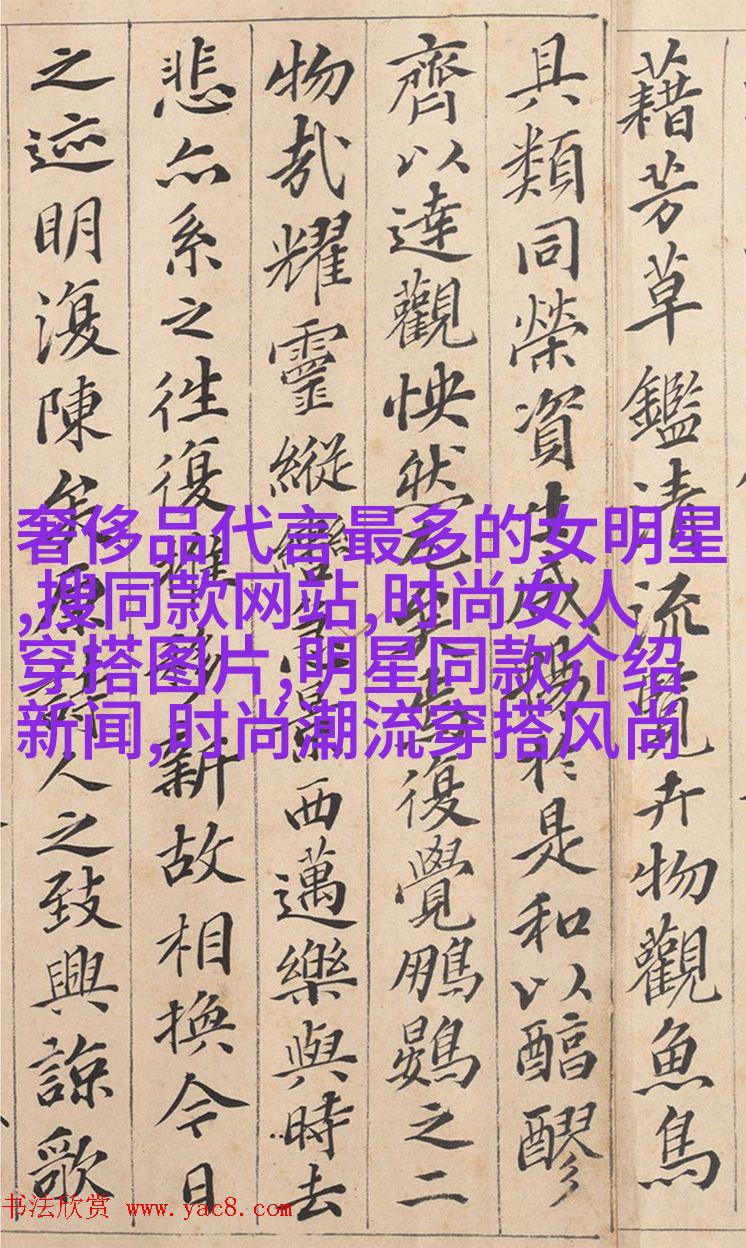 藉芳草鑑清流覽卉物觀魚鳥
具類同榮資生咸暢於是和以醕醪
齊以達觀怏然兀矣焉復覺鵬鷃之二
物哉耀靈縱轡急景西邁樂與時去
悲亦系之往復推移新故相換今日
之迹明復陳矣原詩人之致興諒歌
奢侈品代言最多的女明星
,搜同款网站,时尚女人
穿搭图片,明星同款介绍
新闻,时尚潮流穿搭风尚
书法欣赏 www.yac8.com